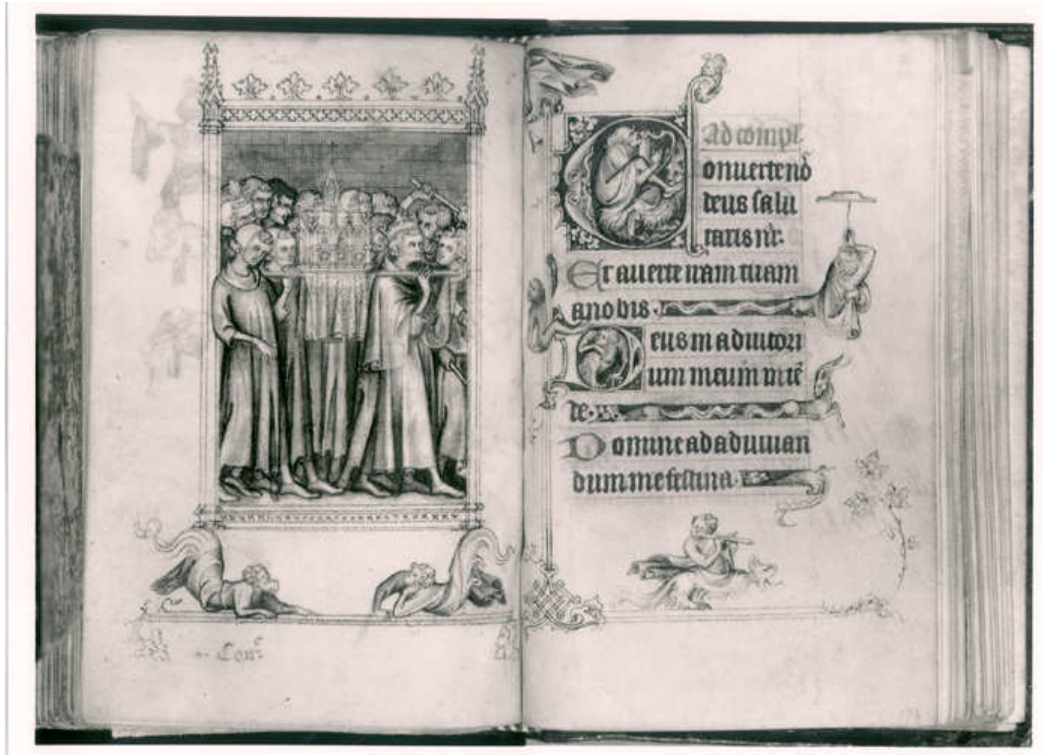 Conu͛
Ad compl
onuerte nõ
deus salu
taris nr̃.
Et auerte iram tuam
a nobis.
Deus in adiutori
um meum inten̄
de.
Domine ad adiuuan
dum me festina.